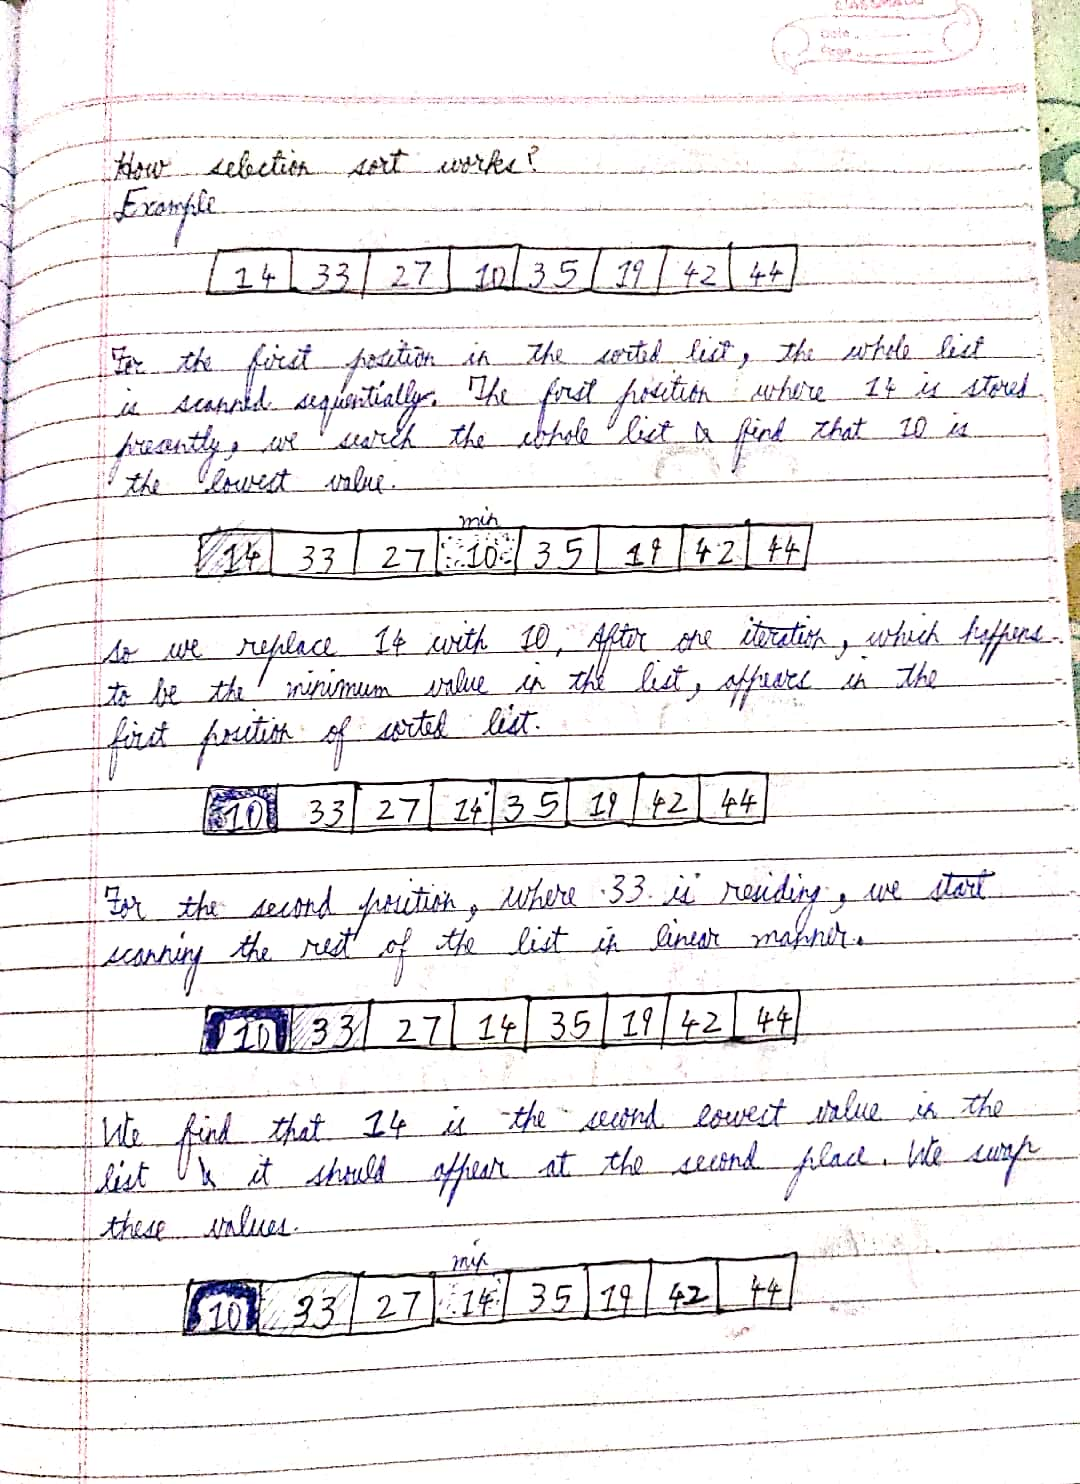 CLASSMATE
Date
Page
How selection sort works?
Example
14 33 27 10 35 19 42 44
For the first position in the sorted list, the whole list
is scanned sequentially. The first position where 14 is stored
presently, we search the whole list & find that 10 is
the lowest value.
min
14 33 27 10 35 19 42 44
So we replace 14 with 10. After one iteration, which happens
to be the minimum value in the list, appears in the
first position of sorted list.
10 33 27 14 35 19 42 44
For the second position, where 33 is residing, we start
scanning the rest of the list in linear manner.
10 33 27 14 35 19 42 44
We find that 14 is the second lowest value in the
list & it should appear at the second place. We swap
these values.
min
10 33 27 14 35 19 42 44